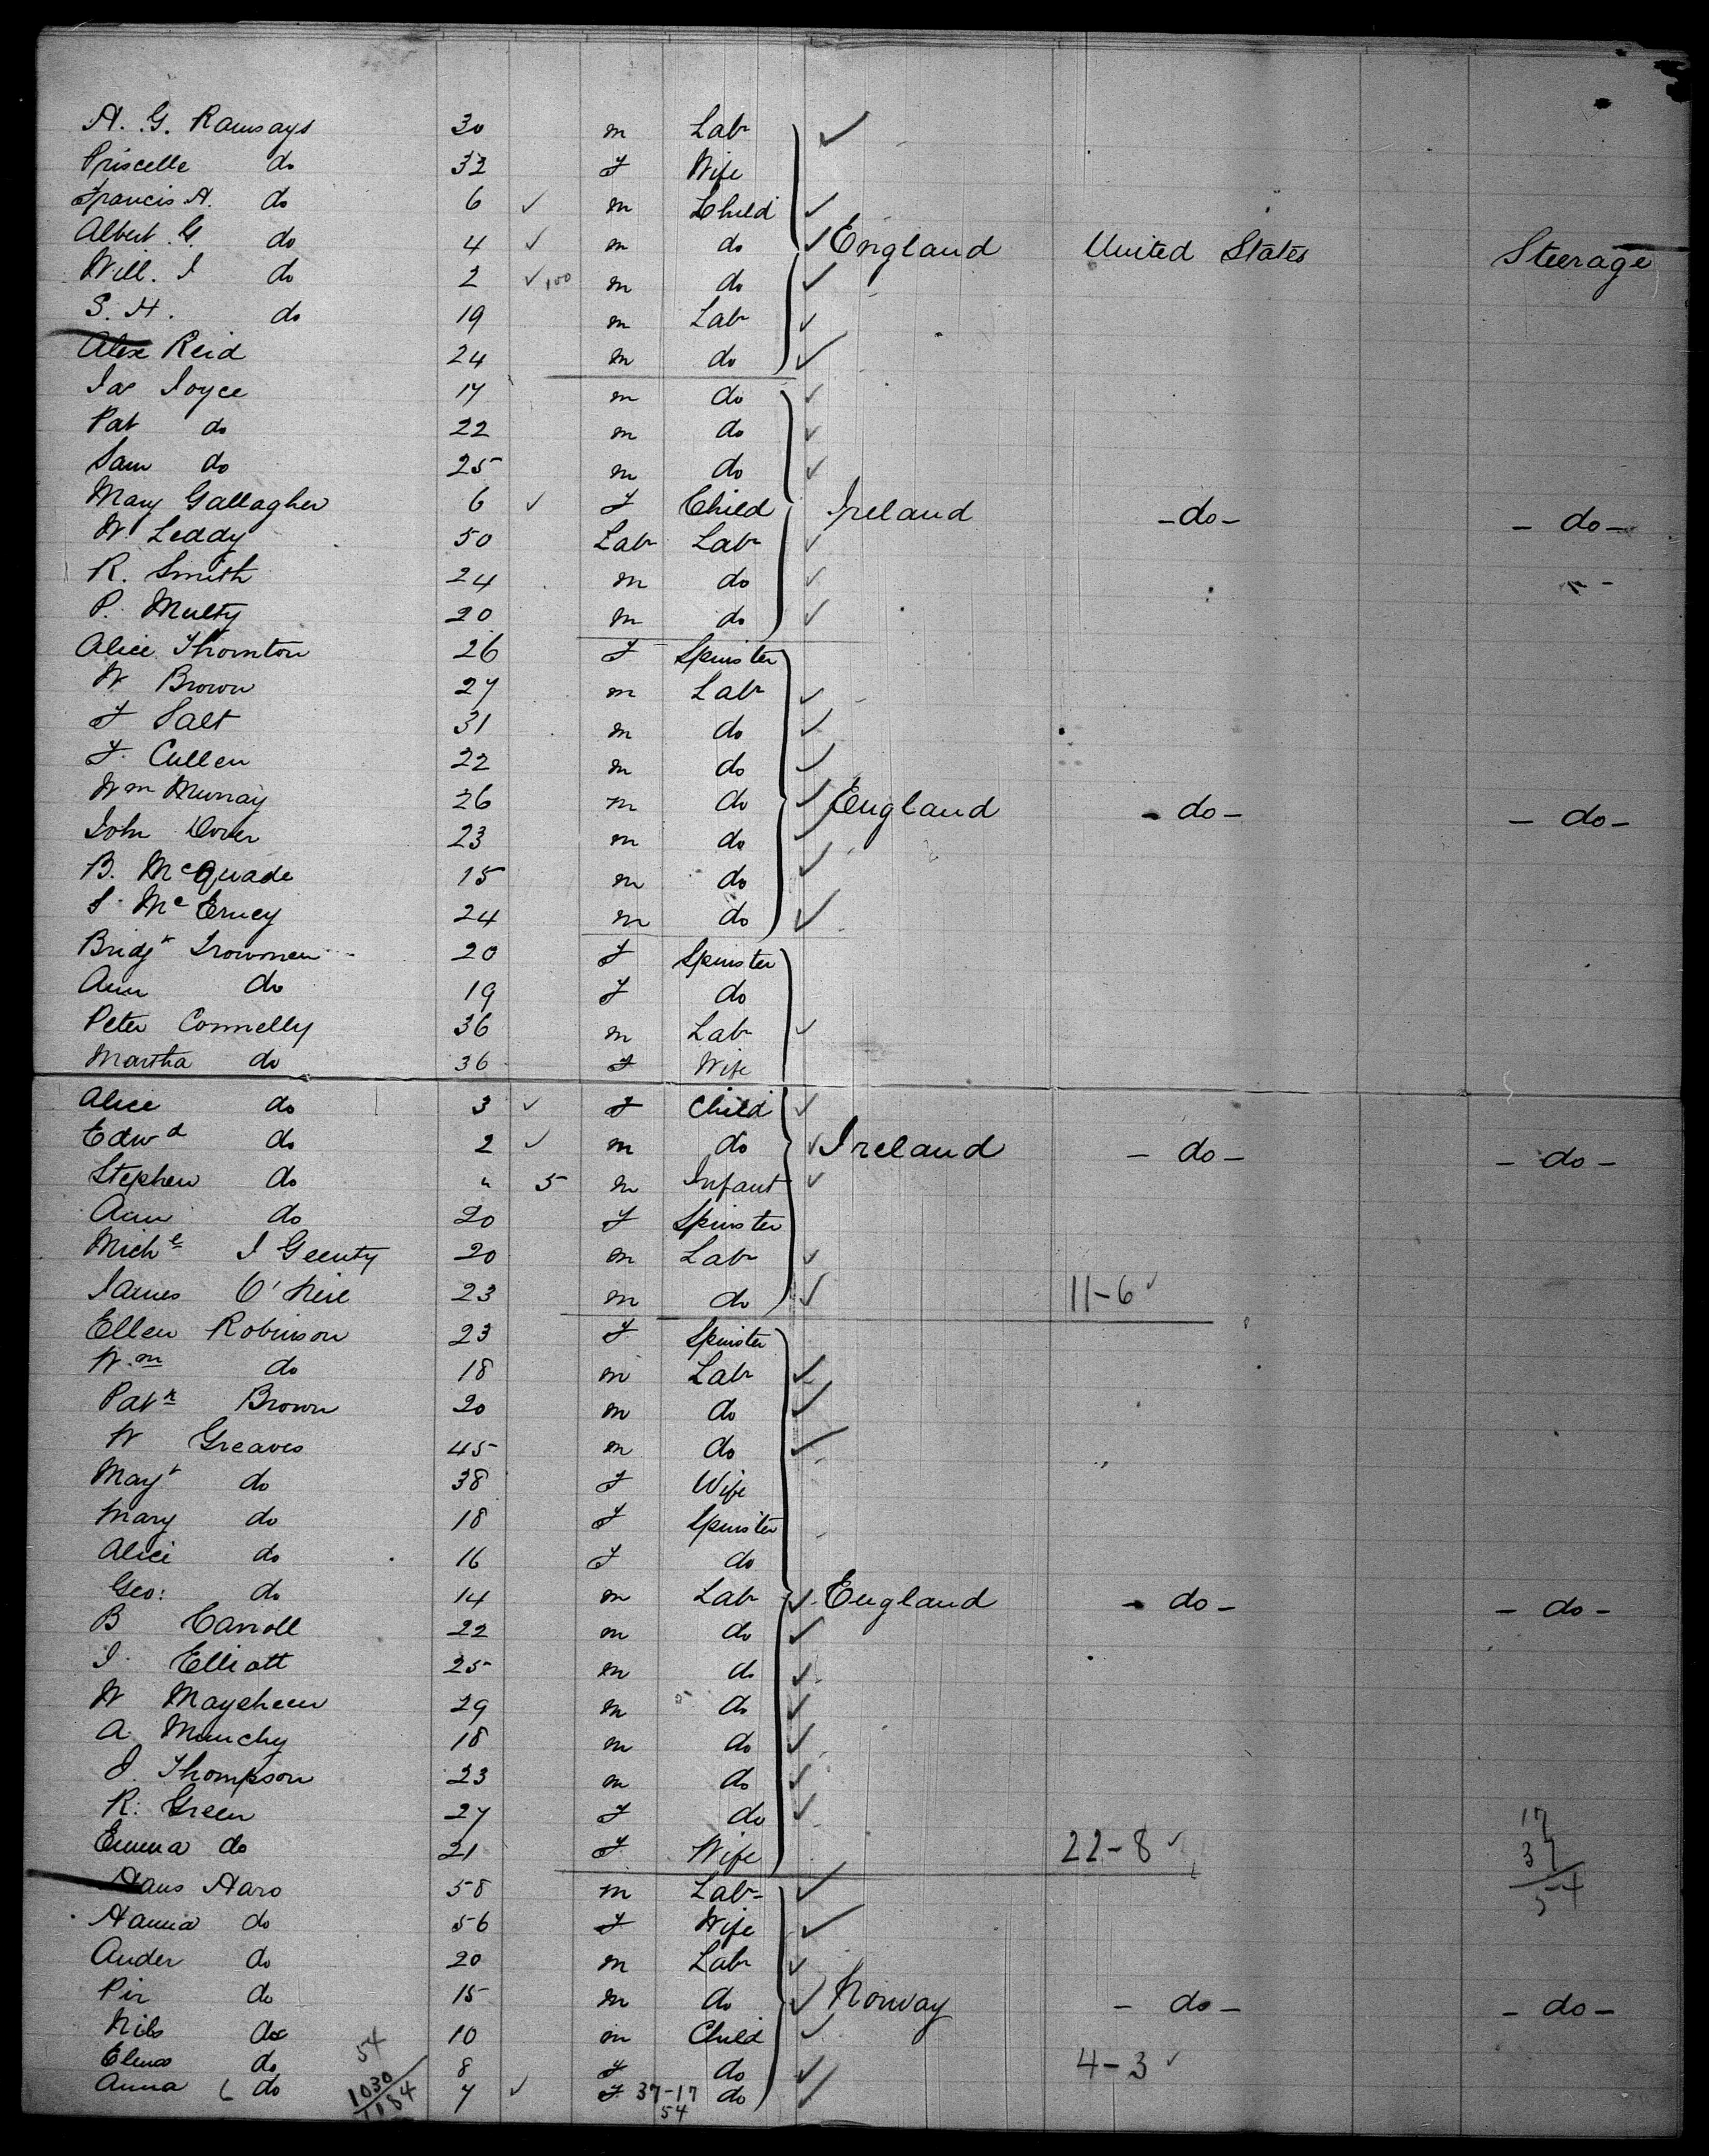 A. G. Ramsays 30 m Lab
Priscelle do 32 F Wife
Francis A. do 6 m Child
Albert G. do 4 m do England United States Steerage
Will. J do 2 100 m do
S. H. do 19 m Lab
Alex Reid 24 m do
Jas Joyce 17 m do
Pat do 22 m do
Sam do 25 m do
Mary Gallagher 6 F Child Ireland - do - - do -
W. Leddy 50 Lab Lab
R. Smith 24 m do
P. Multy 20 m do
Alice Thornton 26 F Spinster
W Brown 27 m Lab
F Salt 31 m do
F. Cullen 22 m do
Wm Murray 26 m do England - do - - do -
John Dover 23 m do
B. McQuade 15 m do
S. McErney 24 m do
Bridgt 20 F Spinster
Ann do 19 F do
Peter Connelly 36 m Lab
Martha do 36 F Wife
Alice do 3 F Child
Edwd do 2 m do Ireland - do - - do -
Stephen do " 5 m Infant
Ann do 20 F Spinster
Michl J Geenty 20 m Lab
James O'Neil 23 m do 11-6
Ellen Robinson 23 F Spinster
Wm do 18 m Lab
Patk Brown 20 m do
W Greaves 45 m do
Mayt do 38 F Wife
Mary do 18 F Spinster
Alice do 16 F do
Geo: do 14 m Lab England - do - - do -
B Carroll 22 m do
J. Elliott 25 m do
W 29 m do
A. Munchy 18 m do
J. Thompson 23 m do
R. Green 27 F do 17
Emma do 21 F Wife 22-8 37
Hans Haro 58 m Lab 54
Hanna do 56 F Wife
Ander do 20 m Lab
Pir do 15 m do Norway - do - - do -
Nils do 10 m Child
Elina do 54 8 F do 4-3
Anna do 1030 7 F 37-17 do
1184 54